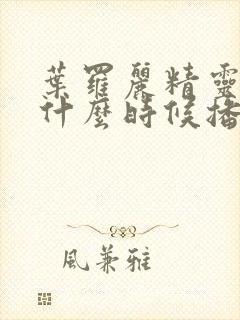 葉羅麗精靈
什麼時候播
風兼雅